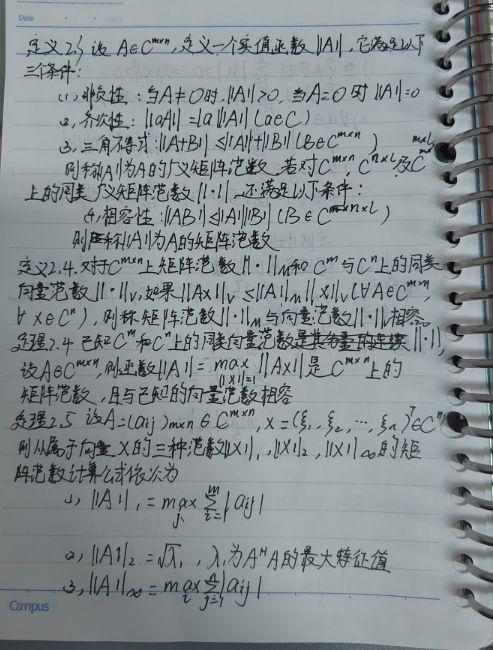 Date
定义2.3 设 A∈C^{m×n}, 定义一个实值函数||A||, 它满足以下
三个条件:
(1) 非负性: 当A≠0时, ||A||>0, 当A=0时 ||A||=0
(2) 齐次性: ||aA||=|a| ||A|| (a∈C)
(3) 三角不等式: ||A+B||≤||A||+||B|| (B∈C^{m×n})
则称||A||为A的广义矩阵范数, 若对C^{m×n}, C^{n×l}及C^{m×l}
上的同类广义矩阵范数||·||, 还满足以下条件:
(4) 相容性: ||AB||≤||A|| ||B|| (B∈C^{n×l})
则称||A||为A的矩阵范数
定义2.4. 对于C^{m×n}上矩阵范数||·||_M和C^m与C^n上的同类
向量范数||·||_V, 如果||Ax||_V≤||A||_M||x||_V (∀A∈C^{m×n},
∀x∈C^n), 则称矩阵范数||·||_M与向量范数||·||_V相容
定理2.4 已知C^m和C^n上的同类向量范数||·||,
设A∈C^{m×n}, 则函数||A||=max_{||x||=1}||Ax||是C^{m×n}上的
矩阵范数, 且与已知的向量范数相容
定理2.5 设A=(aij)m×n∈C^{m×n}, x=(ξ1, ξ2, ···, ξn)^T∈C^n
则从属于向量X的三种范数||X||1, ||X||2, ||X||∞的矩
阵范数计算公式依次为
(1) ||A||1=max_j Σ_{i=1}^m |aij|
(2) ||A||2=√λ1, λ1为A^H A的最大特征值
(3) ||A||∞=max_i Σ_{j=1}^n |aij|
Campus